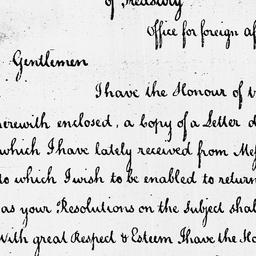 of Treasury
Office for foreign af
Gentlemen
I have the Honour of
herewith enclosed, a Copy of a Letter
which I have lately received from Mes
to which I wish to be enabled to return
as your Resolutions on the Subject shal
With great Respect & Esteem I have the Ho